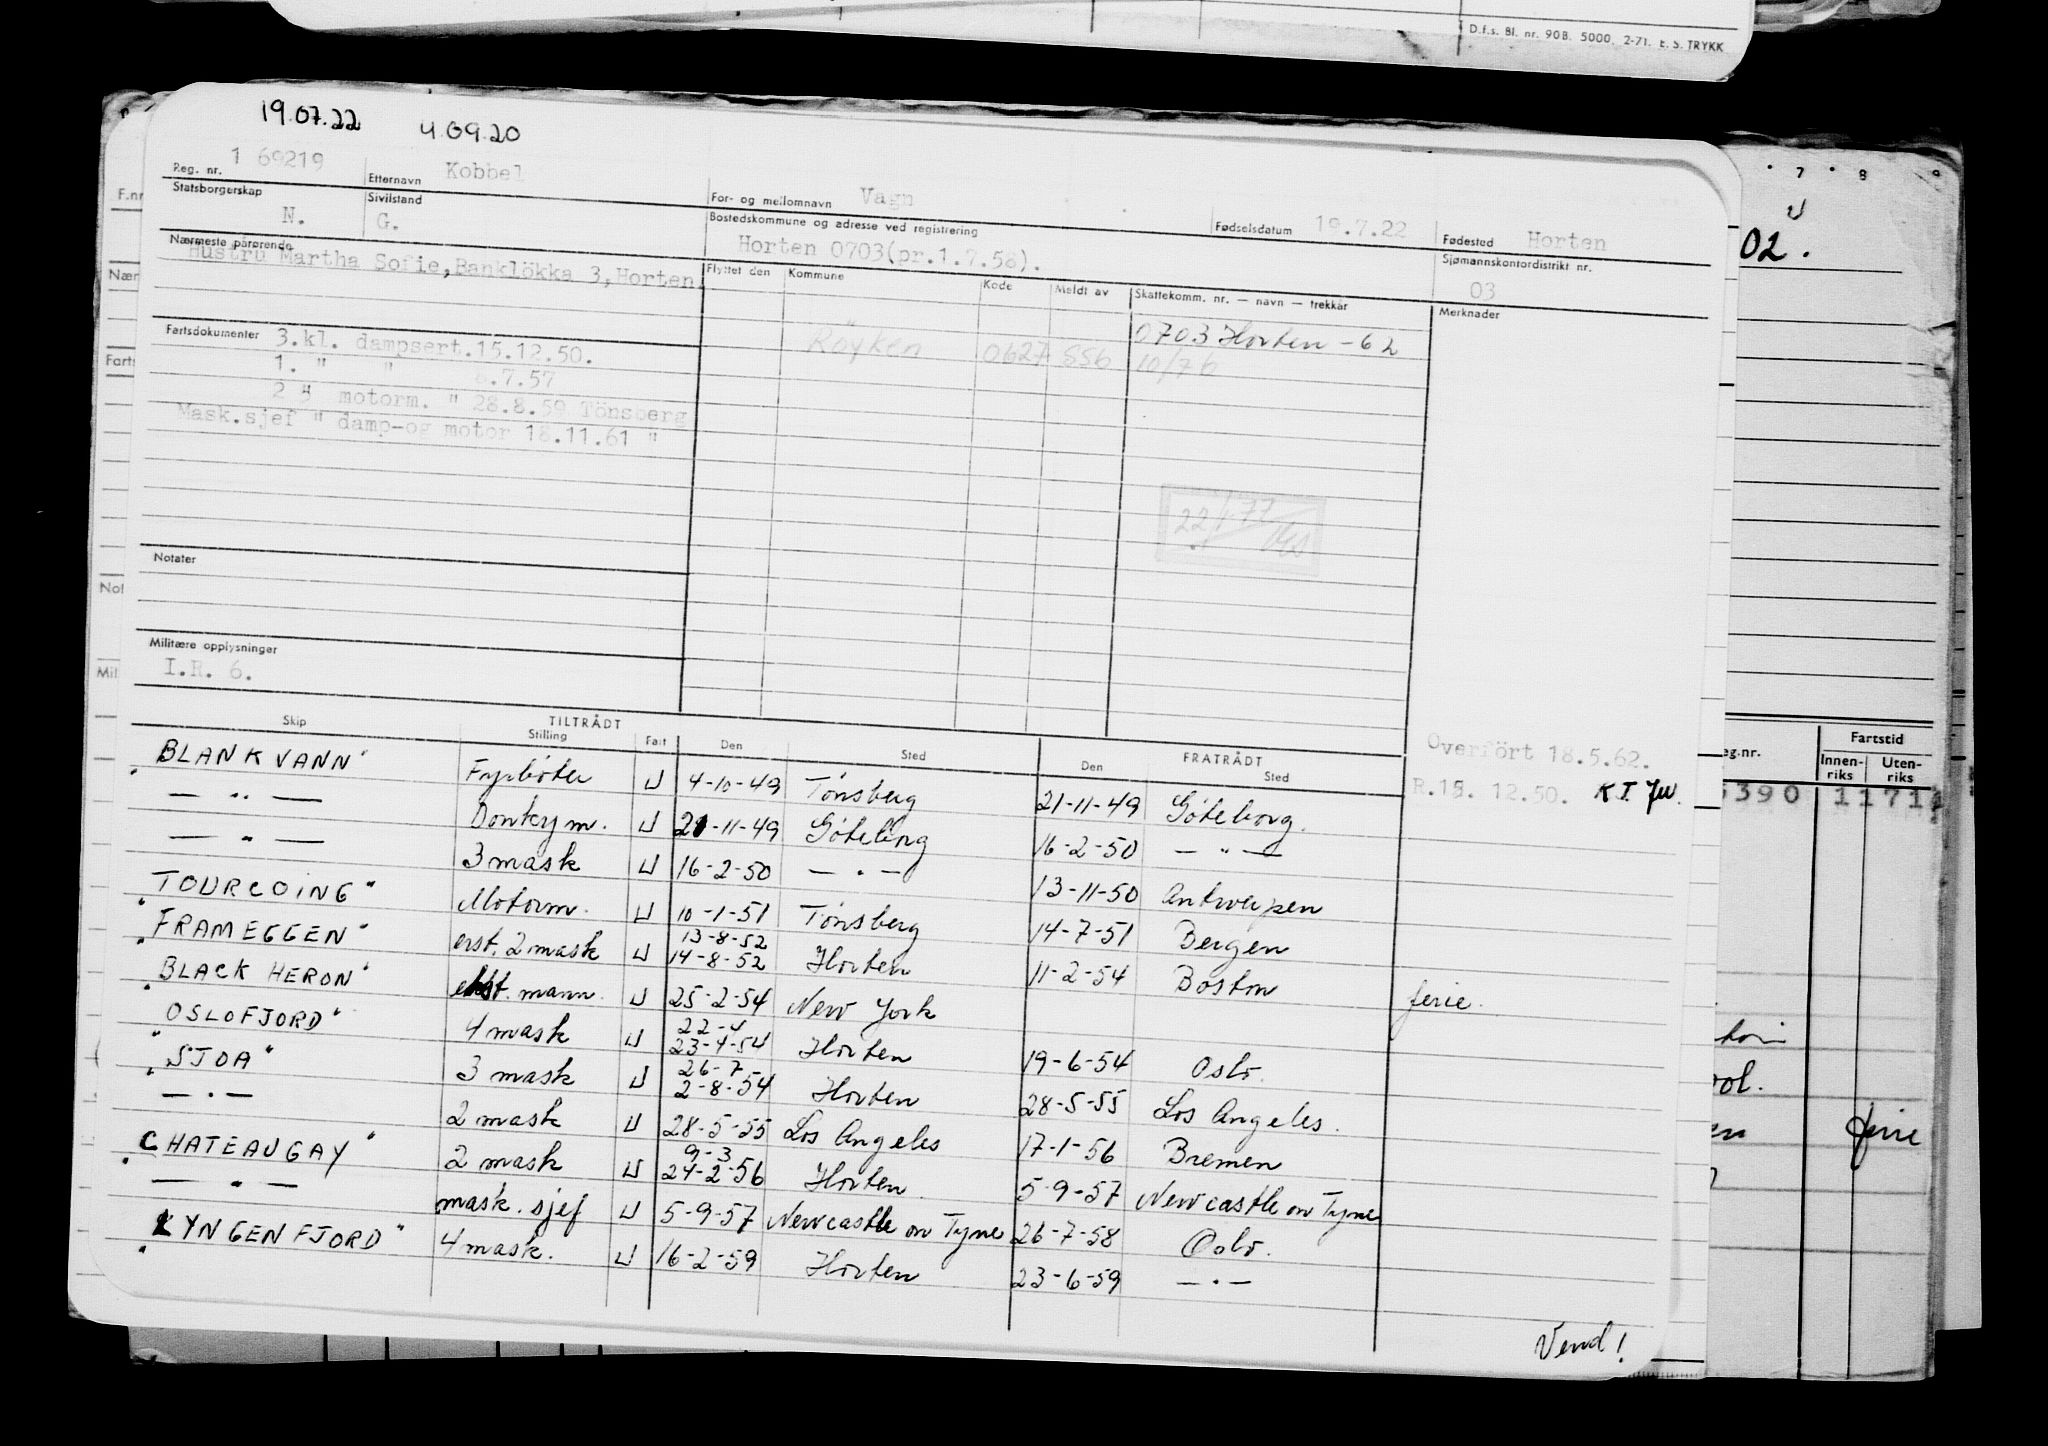 D.f.s. Bl. nr. 90B. 5000. 2-71. E. S. TRYKK
19.07.22 4.09.20
Reg. nr. 1 69219 Etternavn Kobbel For- og mellomnavn Vagn Fødselsdatum 19.7.22 Fødested Horten
Statsborgerskap N. Sivilstand G. Bostedskommune og adresse ved registrering Horten 0703(pr.1.7.58). Sjømannskontordistrikt nr. 03
Nærmeste pårørende Hustru Martha Sofie,Banklökka 3,Horten.
Flyttet den Kommune Kode Meldt av Skattekomm. nr. — navn — trekkår Merknader
0703 Horten - 62
Röyken 0627 556 10/76
Fartsdokumenter 3.kl. dampsert.15.12.50.
1. " " .7.57
2 " motorm. " 28.8.59 Tönsberg
Mask.sjef " damp-og motor 18.11.61 "
Notater
Militære opplysninger
I.R. 6.
TILTRÅDT FRATRÅDT
Skip Stilling Fart Den Sted Den Sted
Overfört 18.5.62.
R.15. 12.50. K.T.
"BLANKVANN" Fyrbøter U 4-10-49 Tönsberg 21-11-49 Göteborg.
— " — Donkeym. U 21-11-49 Göteborg 16-2-50 — " —
— " — 3 mask U 16-2-50 — " — 13-11-50 Antwerpen
"TOURCOING" Motorm. U 10-1-51 Tönsberg 14-7-51 Bergen
"FRAMEGGEN" erst. 2 mask U 13-8-52 14-8-52 Horten 11-2-54 Boston ferie.
"BLACK HERON" ekst. mann. U 25-2-54 New York
"OSLOFJORD" 4 mask U 22-4 23-4-54 Horten 19-6-54 Oslo.
"SJOA" 3 mask U 26-7 2-8-54 Horten 28-5-55 Los Angeles.
— " — 2 mask U 28-5-55 Los Angeles 17-1-56 Bremen
"CHATEAUGAY" 2 mask U 9-3 24-2-56 Horten. 5-9-57 Newcastle on Tyne
— " — mask. sjef U 5-9-57 Newcastle on Tyne 26-7-58 Oslo.
"LYNGENFJORD" 4 mask. U 16-2-59 Horten 23-6-59 — " —
Vend!
F.nr
Nær
Fart
Not
Mil
7 8 9
02.
eg.nr. Fartstid
Innen-riks Uten-riks
390 1171
ferie